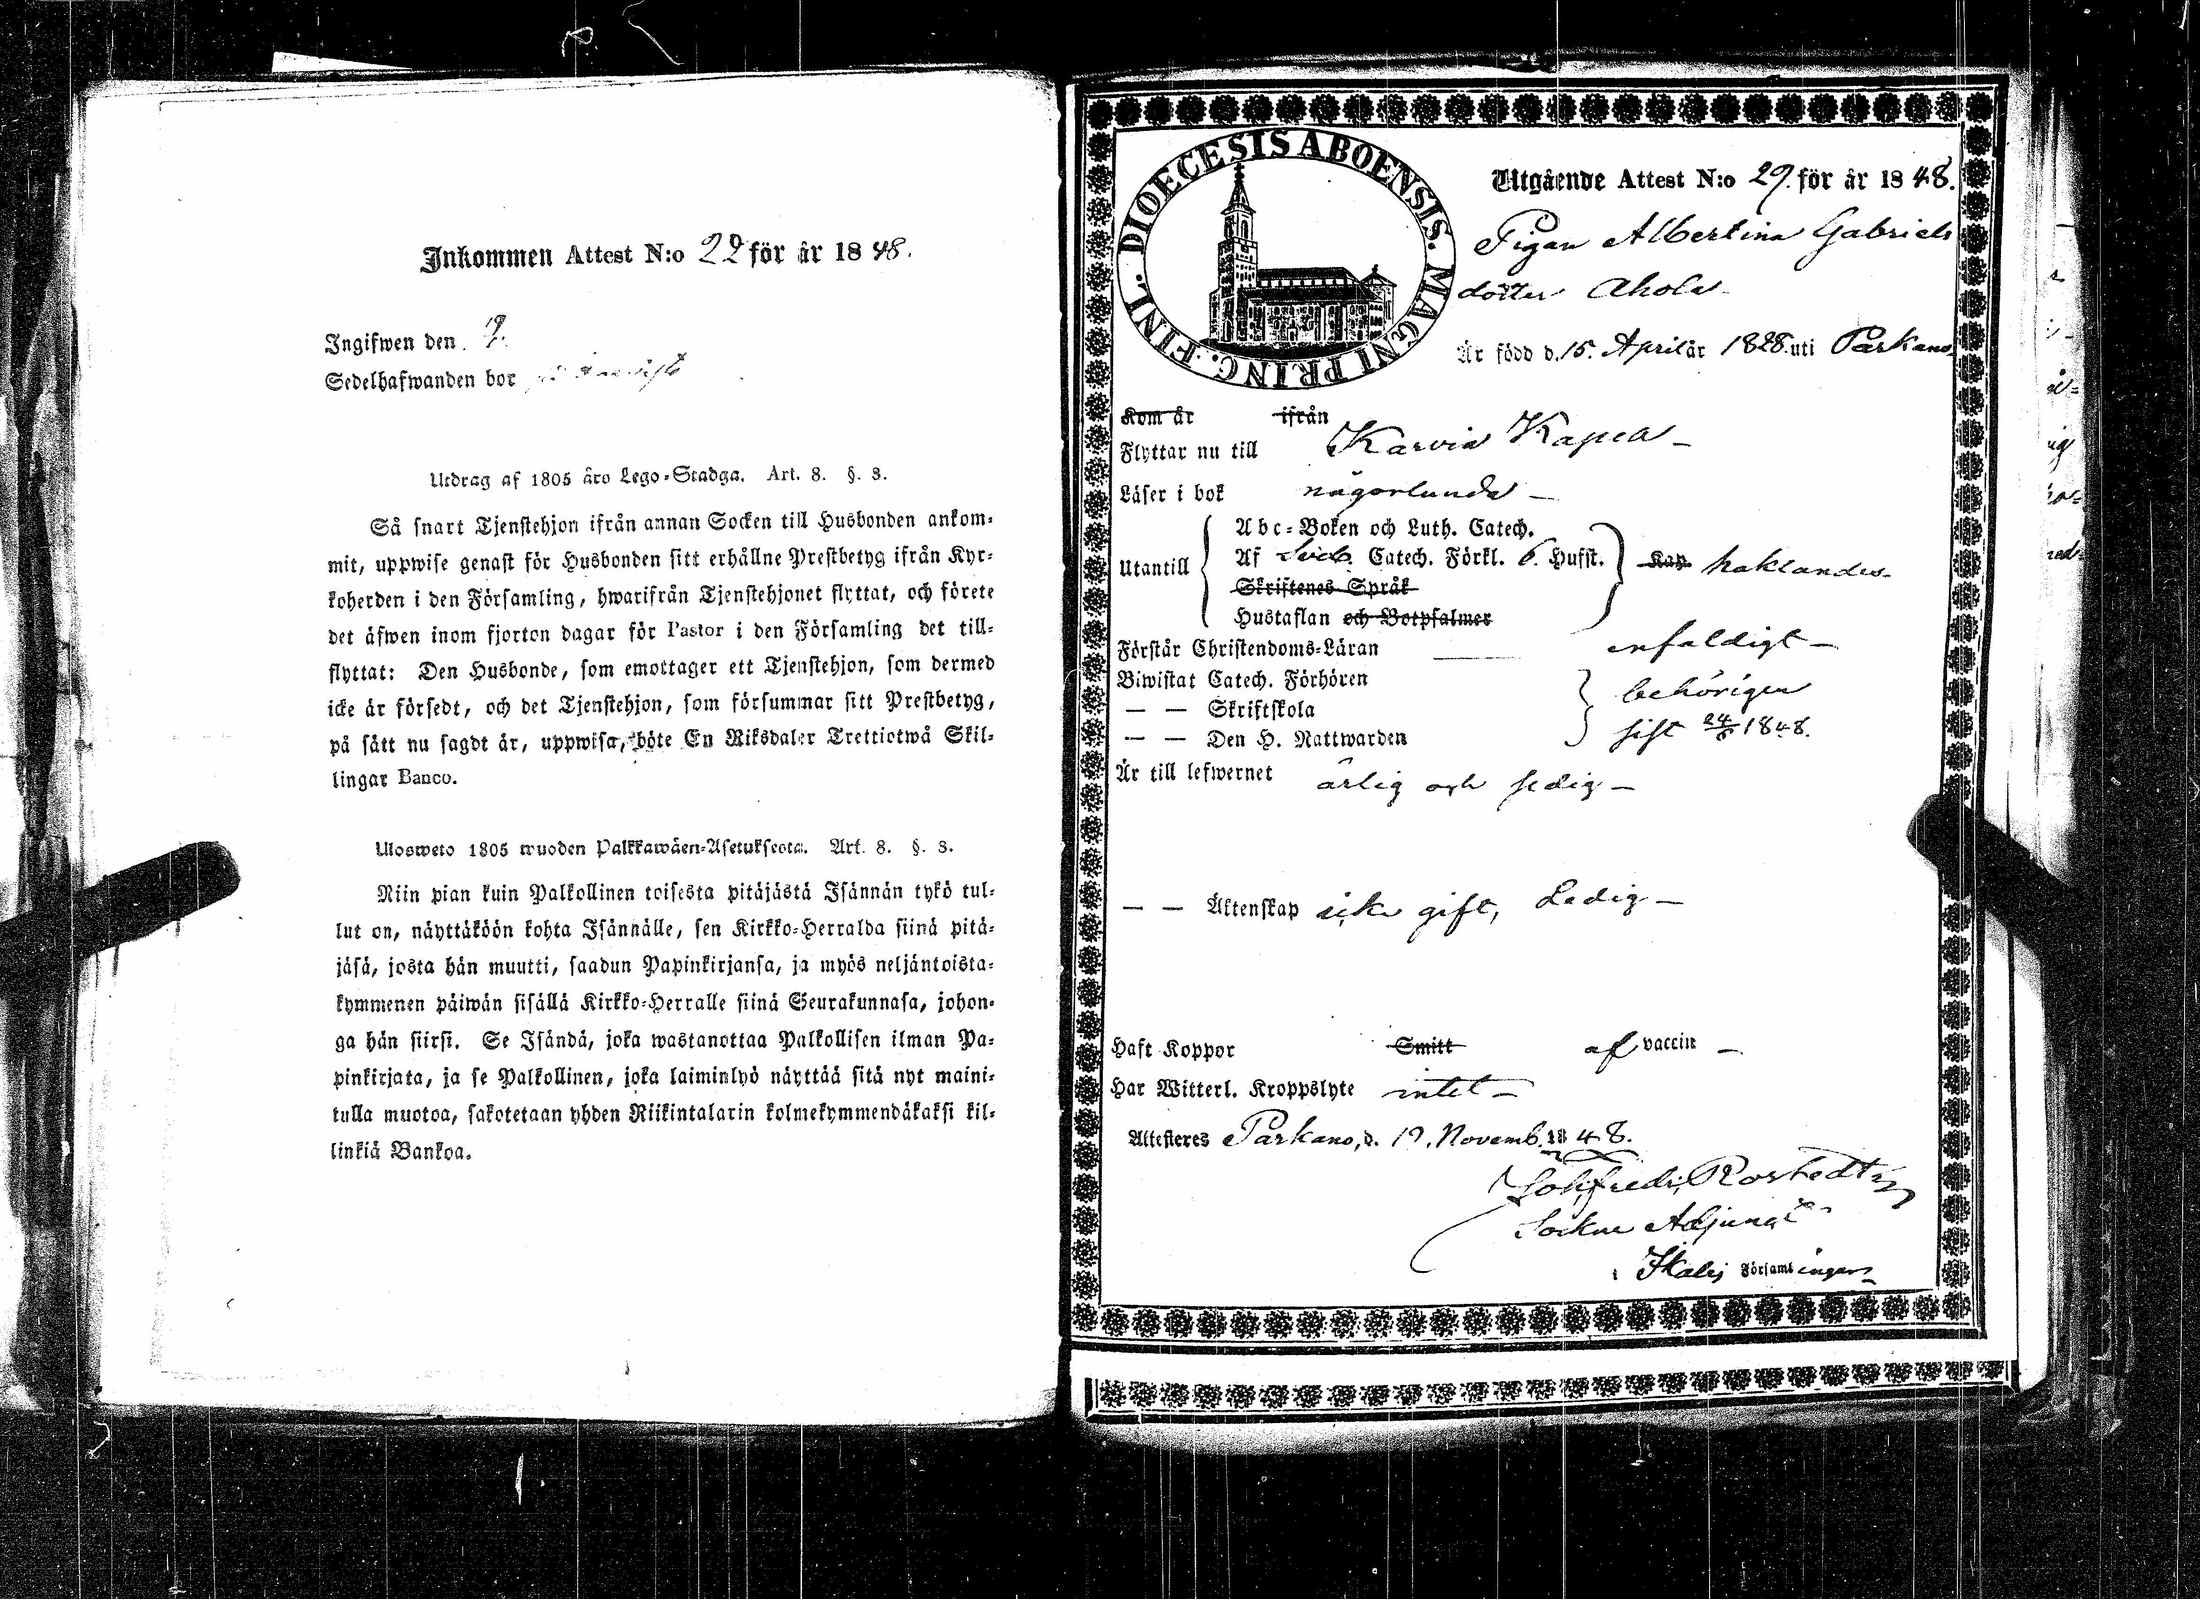 Inkommen Attest N:o 22 för år 1848.
Ingifwen den
Sedelhafwanden bor
Utdrag af 1805 års Lego-Stadga. Art. 8. §. 3.
Så snart Tjenstehjon ifrån annan Socken till Husbonden ankom-
mit, uppwise genast för Husbonden sitt erhållne Prestbetyg ifrån Kyr-
koherden i den Församling, hwarifrån Tjenstehjonet flyttat, och förete
det äfwen inom fjorton dagar för Pastor i den Församling det till-
flyttat: Den Husbonde, som emottager ett Tjenstehjon, som dermed
icke är försedt, och det Tjenstehjon, som försummar sitt Prestbetyg,
på sätt nu sagdt är, uppwisa, böte En Riksdaler Trettiotwå Skil-
lingar Banco.
Ulosweto 1805 wuoden Palkkawäen-Asetuksesta. Art. 8. §. 3.
Niin pian kuin Palkollinen toisesta pitäjästä Isännän tykö tul-
lut on, näyttäköön kohta Isännälle, sen Kirkko-Herralda siinä pitä-
jäsä, josta hän muutti, saadun Papinkirjansa, ja myös neljäntoista-
kymmenen päiwän sisällä Kirkko-Herralle siinä Seurakunnasa, johon-
ga hän siirsi. Se Isändä, joka wastanottaa Palkollisen ilman Pa-
pinkirjata, ja se Palkollinen, joka laiminlyö näyttää sitä nyt maini-
tulla muotoa, sakotetaan yhden Riikintalarin kolmekymmendäkaksi kil-
linkiä Bankoa.
DIOECESIS ABOENSIS. MAGNI PRINC. FINL.
Utgående Attest N:o 29. för år 1848.
Pigan Albertina Gabriels
dotter Ahola
Är född d. 15. April år 1828. uti Parkano
Kom år ifrån
Flyttar nu till Karvia Kapell
Läser i bok någorlunda
Abc-Boken och Luth. Catech.
Utantill Af Sveb. Catech. Förkl. 6. Hufst. Kap.
Skriftenes Språk
Hustaflan och Botpsalmer
Förstår Christendoms-Läran enfaldigt
Biwistat Catech. Förhören behörigen
— — Skriftskola
— — Den H. Nattwarden sist 24/6 1848.
Är till lefwernet ärlig och sedig
— — Äktenskap icke gift, Ledig
Haft Koppor Smitt af vaccin
Har Witterl. Kroppslyte intet
Attesteras Parkano, d. 19. Novemb. 1848.
Rostedt
Sockne Adjunct
i Ikalis Församlingar